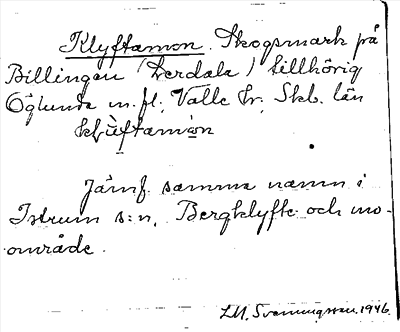 Klyftamon. Skogsmark på
Billingen (Lerdala) tillhörig
Öglunda m. fl., Valle hr, Skb. län
Jämf. samma namn i
Istrum s:n, Bergklyfte- och mo-
område.
LM. Svenungsson. 1946.